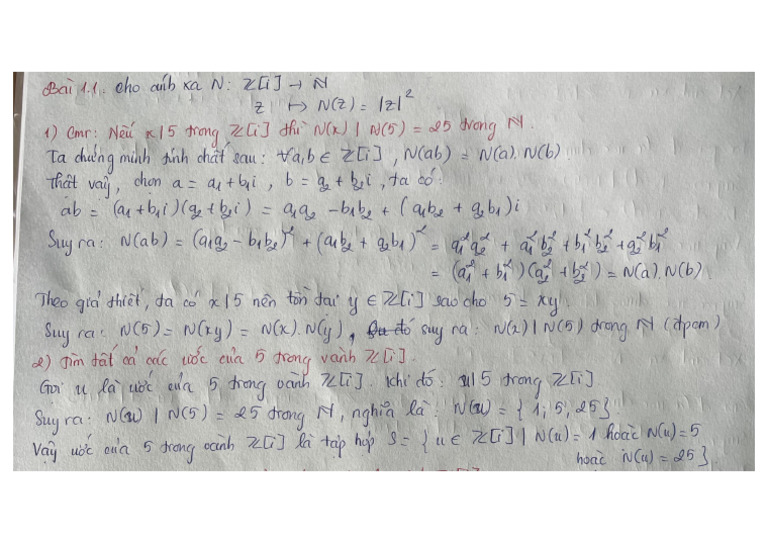 Bài 1.1. Cho ánh xạ N: ℤ[i] → ℕ
z ↦ N(z) = |z|²
1) Cmr: Nếu x|5 trong ℤ[i] thì N(x) | N(5) = 25 trong ℕ.
Ta chứng minh tính chất sau: ∀a,b ∈ ℤ[i], N(ab) = N(a).N(b).
Thật vậy, chọn a = a₁+b₁i, b = a₂+b₂i, ta có:
ab = (a₁+b₁i)(a₂+b₂i) = a₁a₂ - b₁b₂ + (a₁b₂ + a₂b₁)i
Suy ra: N(ab) = (a₁a₂ - b₁b₂)² + (a₁b₂ + a₂b₁)² = a₁²a₂² + a₁²b₂² + b₁²b₂² + a₂²b₁²
= (a₁² + b₁²)(a₂² + b₂²) = N(a).N(b).
Theo giả thiết, ta có x|5 nên tồn tại y ∈ ℤ[i] sao cho 5 = xy.
Suy ra: N(5) = N(xy) = N(x).N(y), suy ra: N(x) | N(5) trong ℕ (đpcm)
2) Tìm tất cả các ước của 5 trong vành ℤ[i].
Gọi u là ước của 5 trong vành ℤ[i]. Khi đó: u|5 trong ℤ[i]
Suy ra: N(u) | N(5) = 25 trong ℕ, nghĩa là: N(u) = {1; 5; 25}.
Vậy ước của 5 trong vành ℤ[i] là tập hợp S = {u ∈ ℤ[i] | N(u) = 1 hoặc N(u) = 5
hoặc N(u) = 25}.